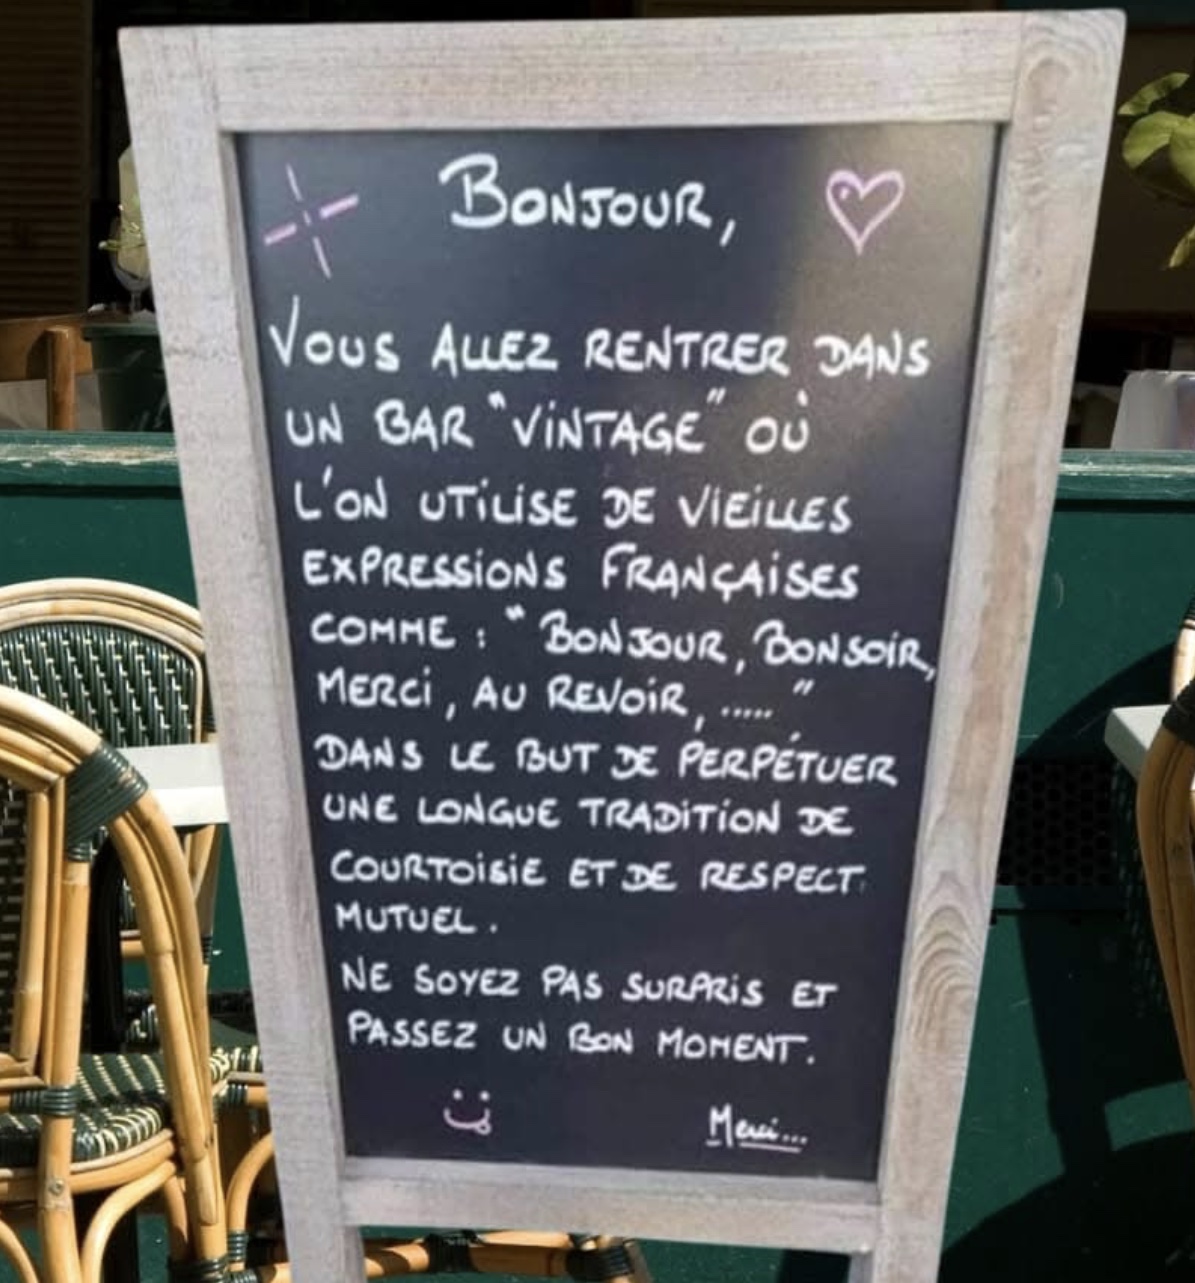 BONJOUR,
VOUS ALLEZ RENTRER DANS
UN BAR "VINTAGE" OÙ
L'ON UTILISE DE VIEILLES
EXPRESSIONS FRANÇAISES
COMME : "BONJOUR, BONSOIR,
MERCI, AU REVOIR, ....."
DANS LE BUT DE PERPÉTUER
UNE LONGUE TRADITION DE
COURTOISIE ET DE RESPECT
MUTUEL.
NE SOYEZ PAS SURPRIS ET
PASSEZ UN BON MOMENT.
Merci...